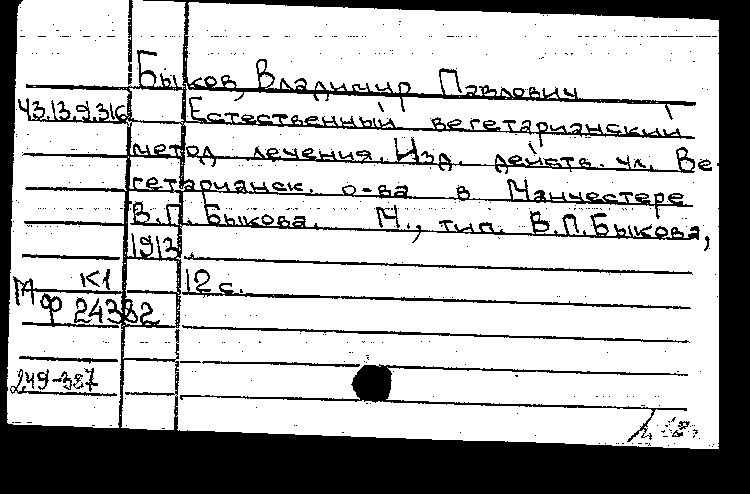 Быков, Владимир Павлович
43.13.9.316 Естественный вегетарианский
метод лечения. Изд. действ. чл. Ве-
гетарианск. о-ва в Манчестере
В.П. Быкова. М., тип. В.П.Быкова,
1913.
К1 12 с.
МФ 24382
249-387